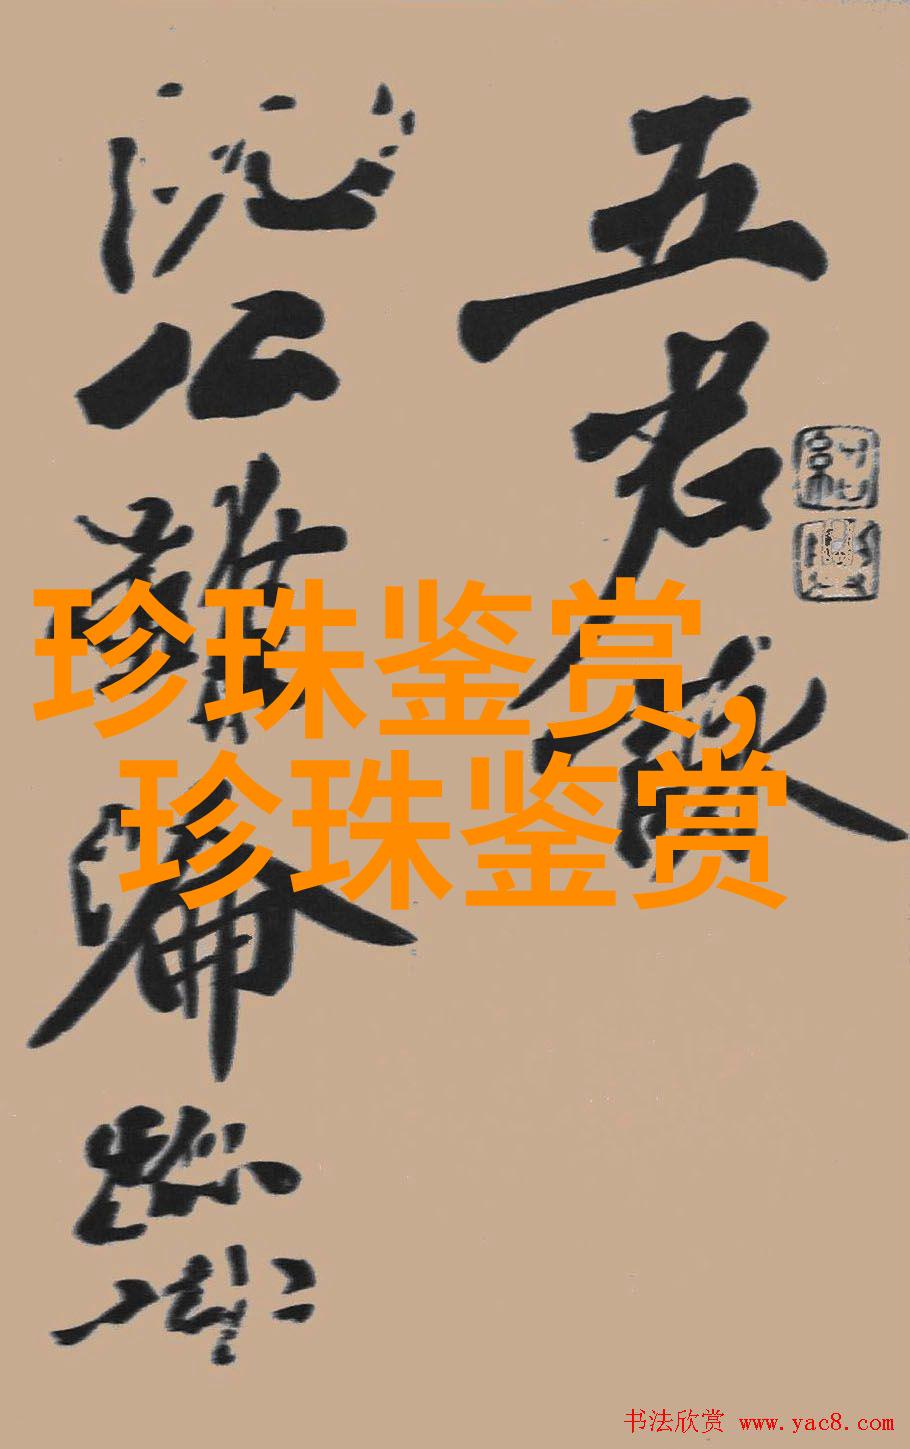 五君詠
阮公雖淪跡
珍珠鉴赏,
珍珠鉴赏
书法欣赏 www.yac8.com